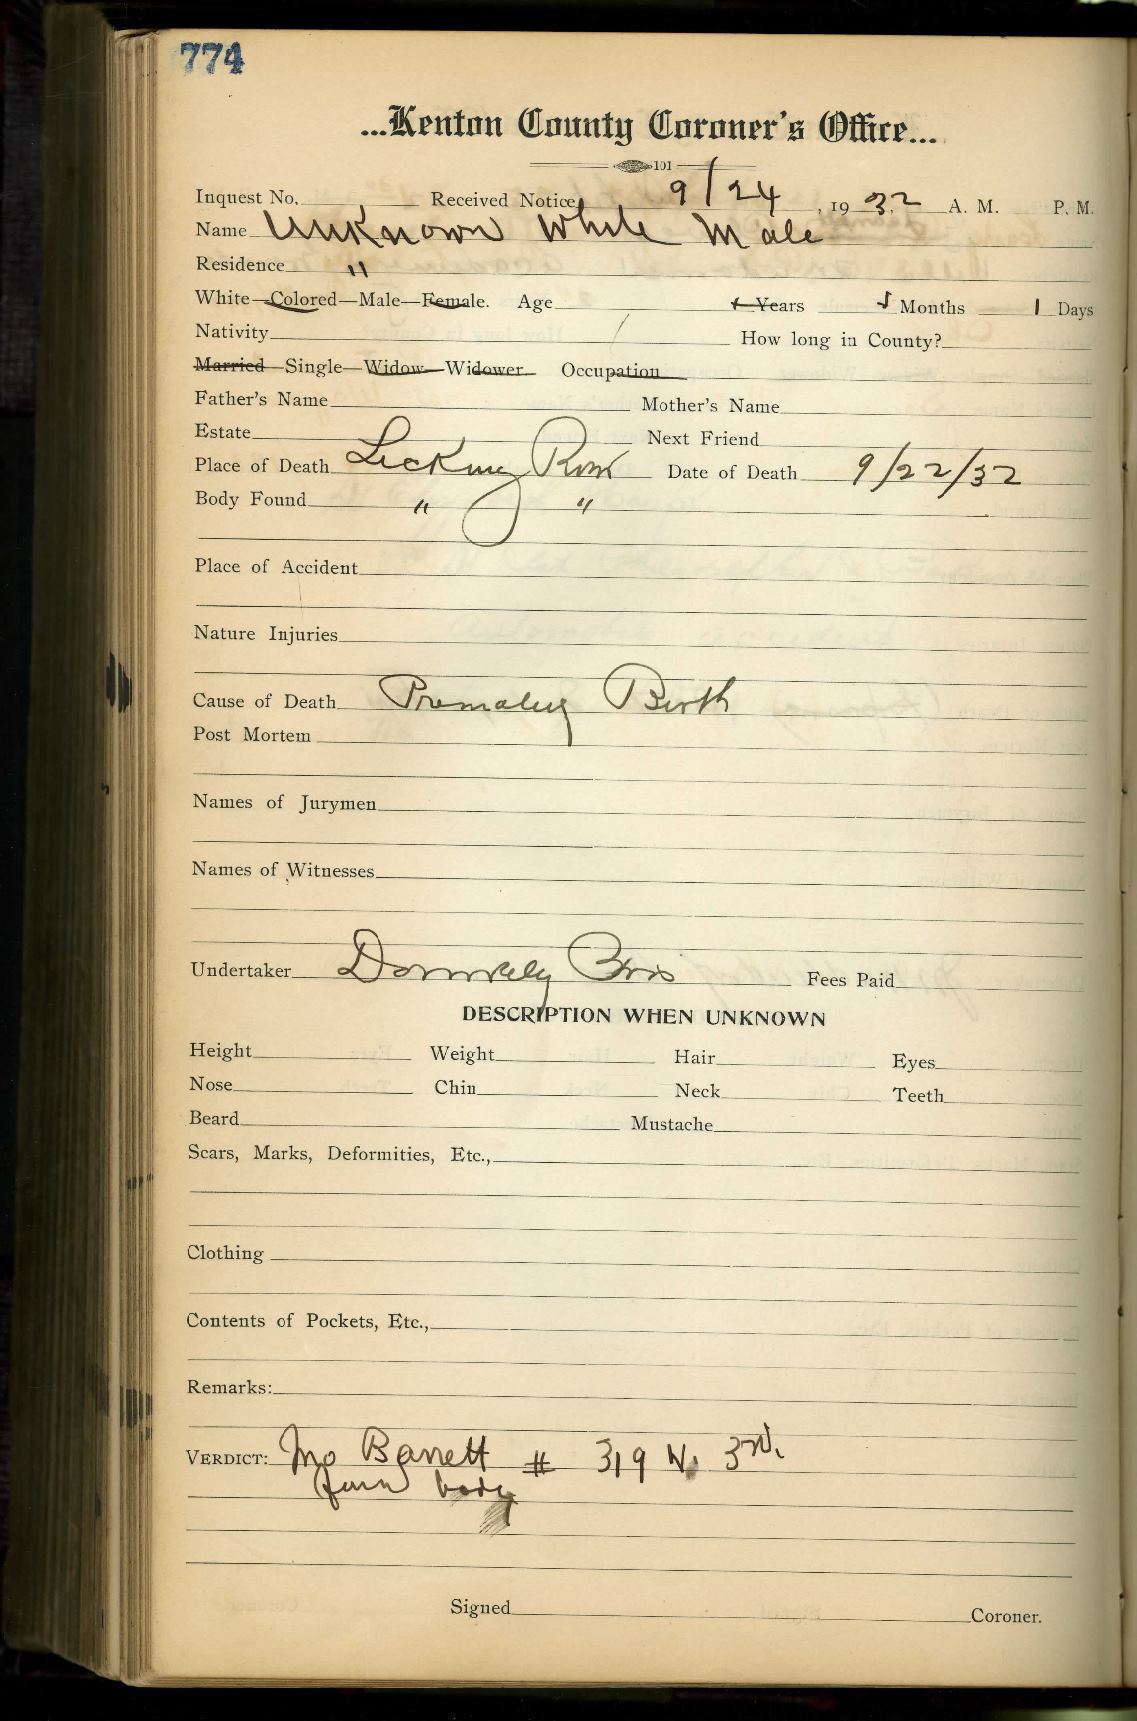 774
...Kenton County Coroner's Office...
101
Inquest No. Received Notice 9/24, 1932 A. M. P. M.
Name Unknown White Male
Residence "
White—Colored—Male—Female. Age Years Months 1 Days
Nativity How long in County?
Married—Single—Widow—Widower Occupation
Father's Name Mother's Name
Estate Next Friend
Place of Death Licking River Date of Death 9/22/32
Body Found " "
Place of Accident
Nature Injuries
Cause of Death Birth
Post Mortem
Names of Jurymen
Names of Witnesses
Undertaker Donnely Bros Fees Paid
DESCRIPTION WHEN UNKNOWN
Height Weight Hair Eyes
Nose Chin Neck Teeth
Beard Mustache
Scars, Marks, Deformities, Etc.,
Clothing
Contents of Pockets, Etc.,
Remarks:
VERDICT: Barrett # 319 W. 3rd.
body
Signed Coroner.